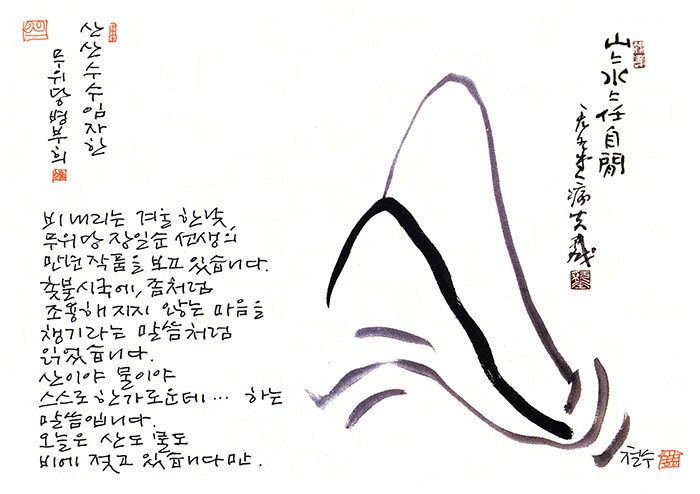 산산수수임자한
무위당병부희
비 내리는 겨울 한낮,
무위당 장일순 선생의,
만년작품을 보고 있습니다.
촛불시국에, 좀처럼
조용해 지지 않는 마음을
챙기라는 말씀처럼
읽었습니다.
산이야 물이야
스스로 한가로운데… 하는
말씀입니다.
오늘은 산도 물도
비에 젖고 있습니다만.
山々水々任自閒
无为堂病夫戱
철수